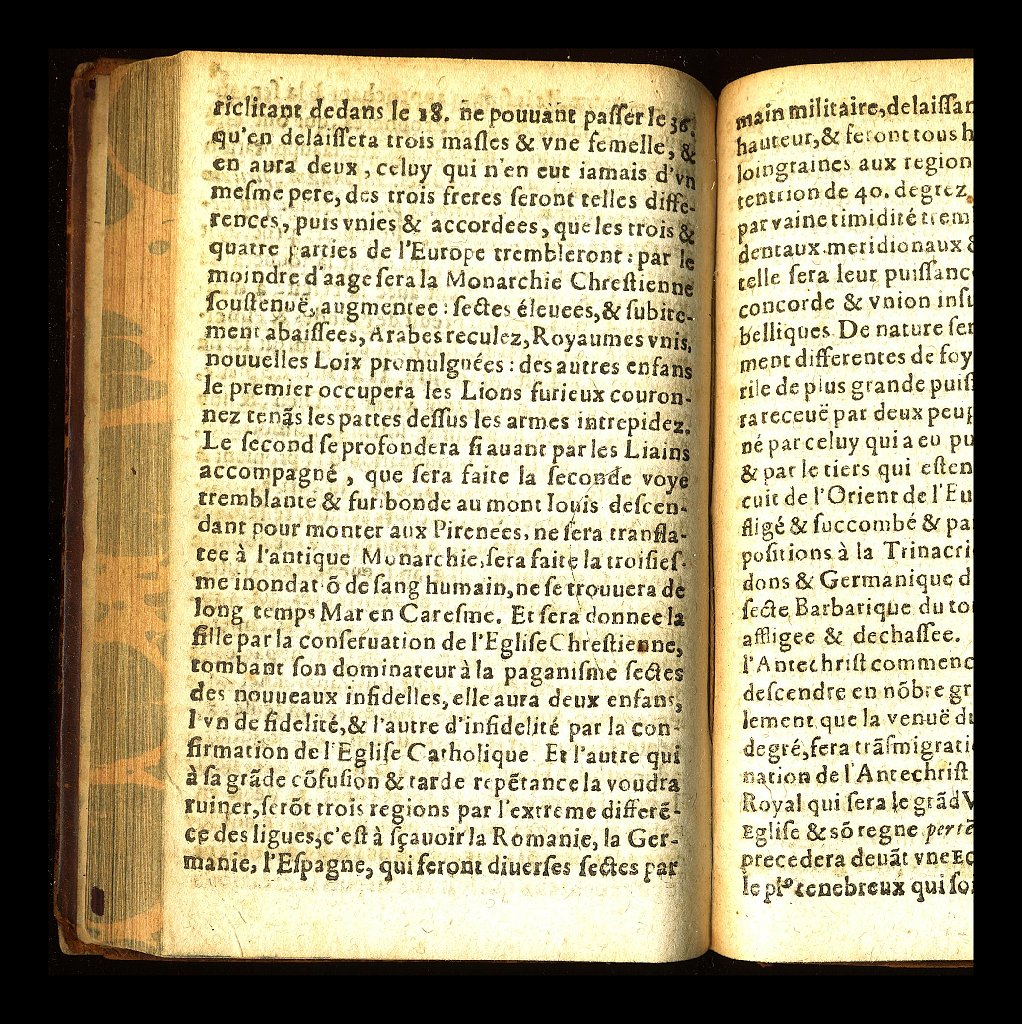 riclitant dedans le 18. ne pouuant paſſer le 36.
qu'en delaiſſera trois maſles & vne femelle, &
en aura deux, celuy qui n'en eut iamais d'vn
meſme pere, des trois freres ſeront telles diffe-
rences, puis vnies & accordees, que les trois &
quatre parties de l'Europe trembleront : par le
moindre d'aage ſera la Monarchie Chreſtienne
ſouſtenuë, augmentee : ſectes éleuees, & ſubite-
ment abaiſſees, Arabes reculez, Royaumes vnis,
nouuelles Loix promulguées : des autres enfans
le premier occupera les Lions furieux couron-
nez tenãs les pattes deſſus les armes intrepidez.
Le ſecond ſe profondera ſi auant par les Liains
accompagné, que ſera faite la ſeconde voye
tremblante & furibonde au mont Iouis deſcen-
dant pour monter aux Pirenées, ne ſera tranſla-
tee à l'antique Monarchie, ſera faite la troiſieſ-
me inondatiõ de ſang humain, ne ſe trouuera de
long temps Mar en Careſme. Et ſera donnee la
fille par la conſeruation de l'Egliſe Chreſtienne,
tombant ſon dominateur à la paganiſme ſectes
des nouueaux infidelles, elle aura deux enfans,
l'vn de fidelité, & l'autre d'infidelité par la con-
firmation de l'Egliſe Catholique. Et l'autre qui
à ſa grãde cõfuſion & tarde repẽtance la voudra
ruiner, ſerõt trois regions par l'extreme differẽ-
ce des ligues, c'eſt à ſçauoir la Romanie, la Ger-
manie, l'Eſpagne, qui feront diuerſes ſectes par
main militaire, delaiſſan
hauteur, & feront tous h
loingraines aux region
tentrion de 40. degrez
par vaine timidité trem
dentaux meridionaux &
telle ſera leur puiſſanc
concorde & vnion inſu
belliques De nature ſer
ment differentes de foy
rile de plus grande puiſ
ra receuë par deux peup
né par celuy qui a eu pu
& par le tiers qui eſten
cuit de l'Orient de l'Eu
fligé & ſuccombé & pa
poſitions à la Trinacri
dons & Germanique d
ſecte Barbarique du to
affligee & dechaſſee.
l'Antechriſt commenc
deſcendre en nõbre gr
lement que la venuë du
degré, fera trãſmigrati
nation de l'Antechriſt
Royal qui ſera le grãd V
Egliſe & sõ regne pertẽ
precedera deuãt vne Ec
le plº tenebreux qui ſoi